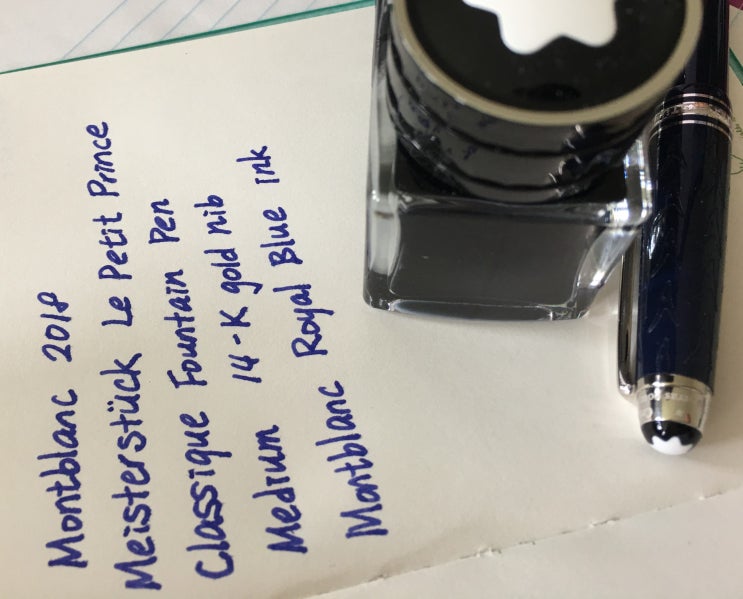 Montblanc 2018
Meisterstück Le Petit Prince
Classique Fountain Pen
Medium 14-K gold nib
Montblanc Royal Blue ink